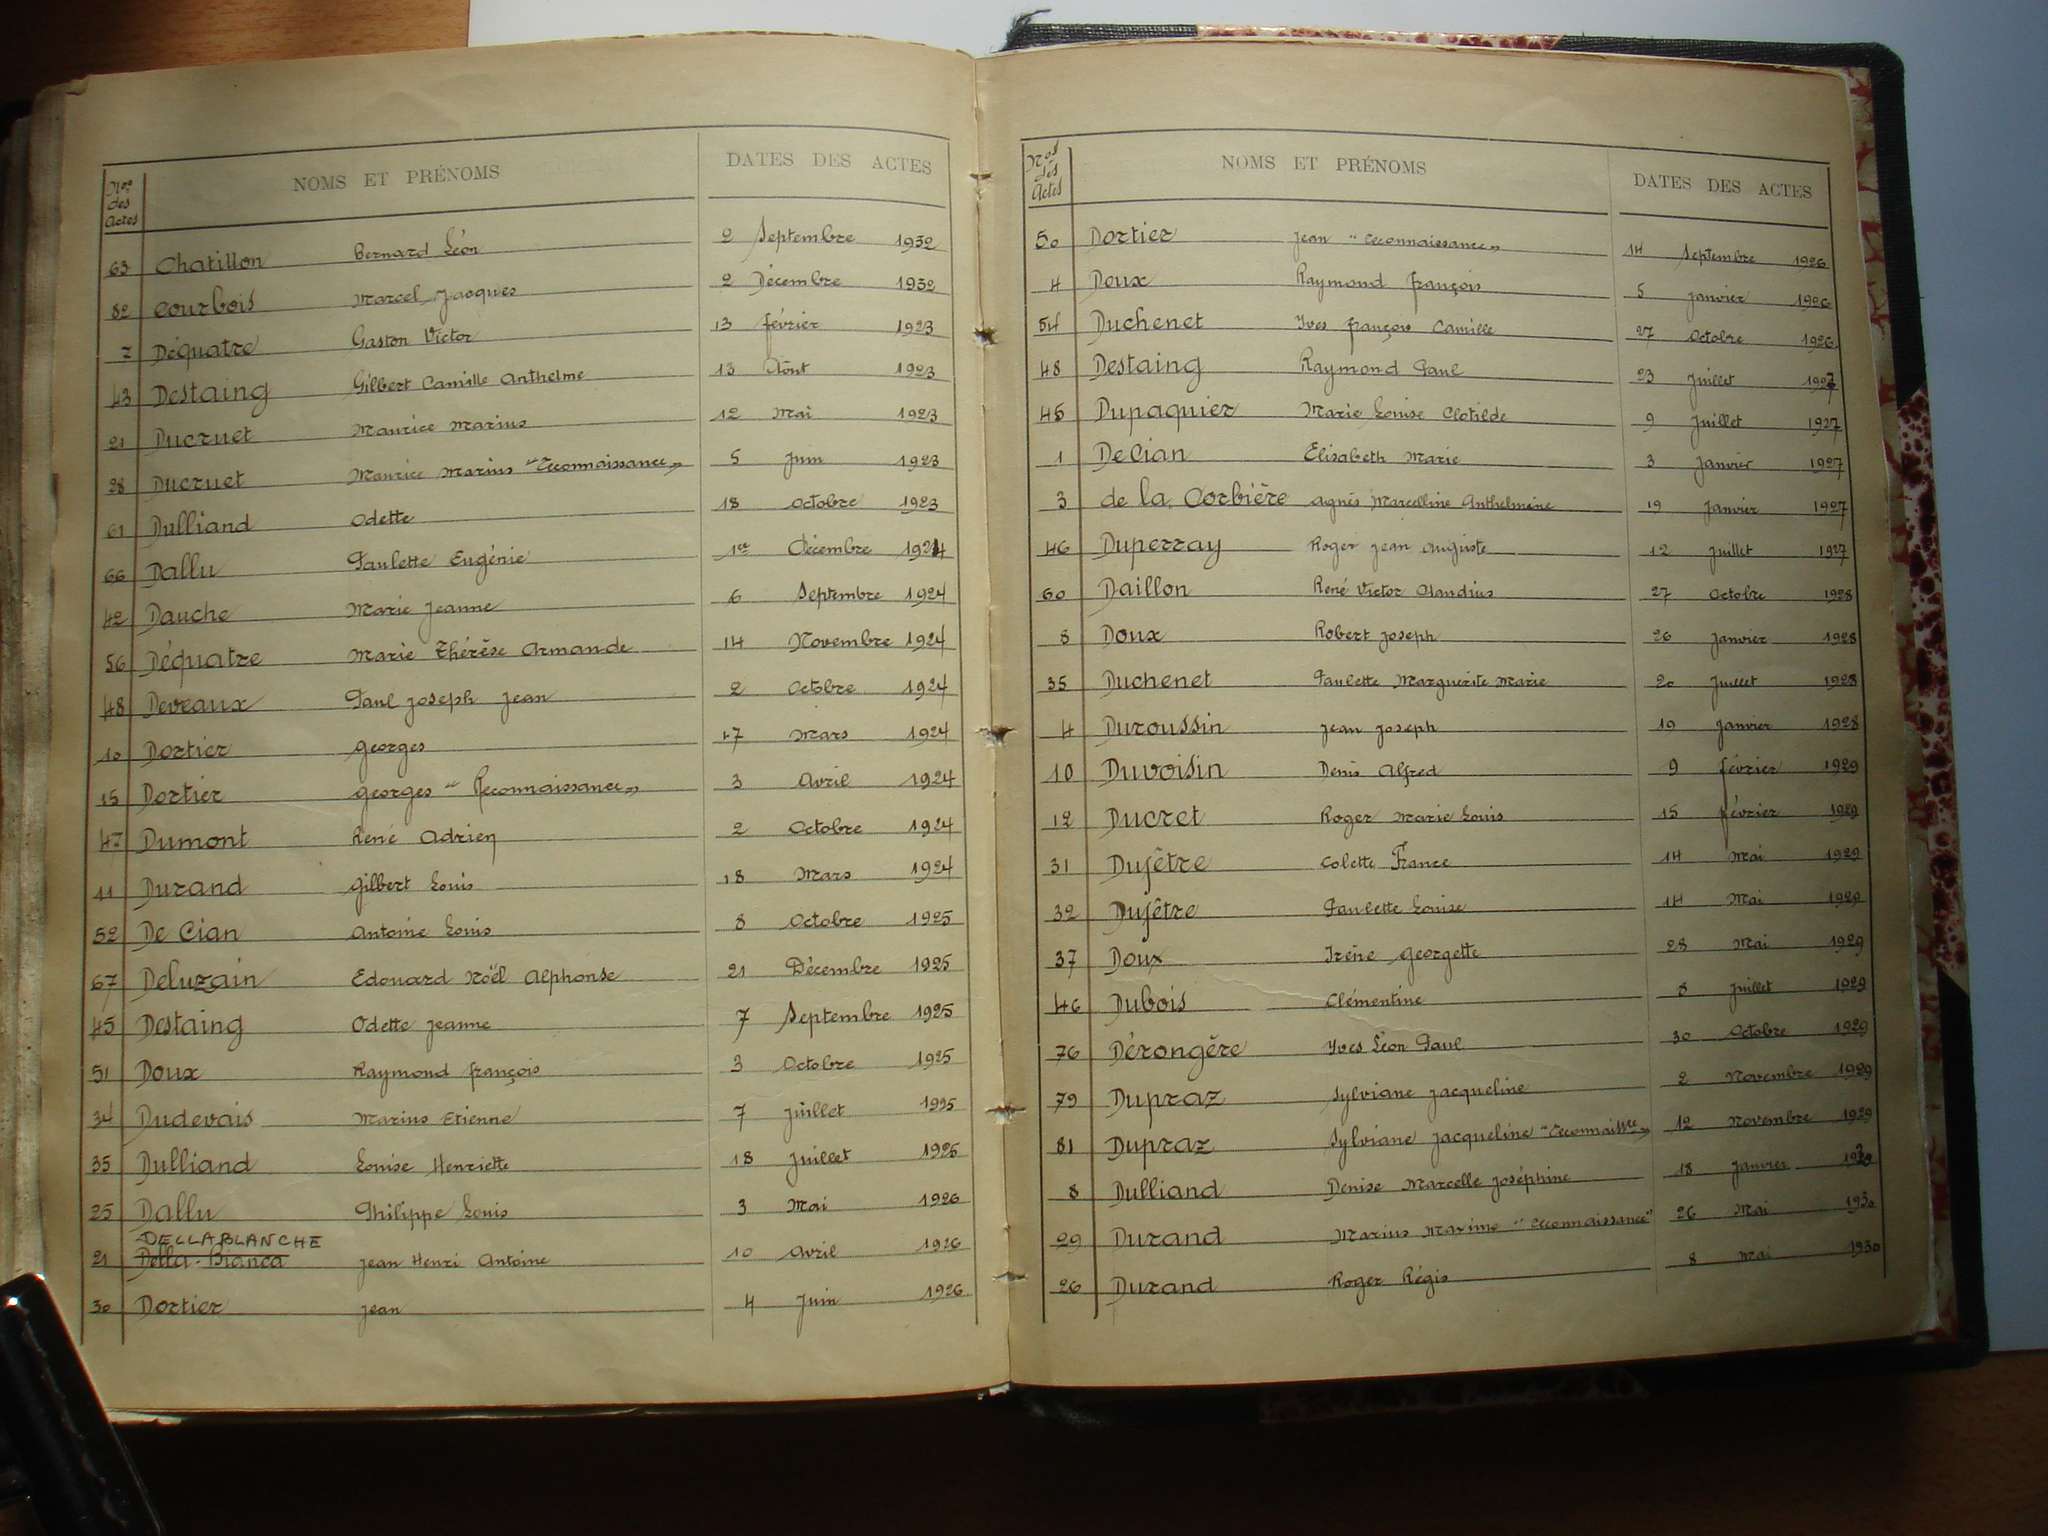 Nos des Actes NOMS ET PRÉNOMS DATES DES ACTES
63 Chatillon Bernard Léon 2 Septembre 1932
82 Courbois Marcel Jacques 2 Décembre 1932
7 Déquatre Gaston Victor 13 février 1923
43 Destaing Gilbert Camille Anthelme 13 Août 1923
21 Ducruet Maurice Marius 12 Mai 1923
28 Ducruet Maurice Marius "Reconnaissance" 5 Juin 1923
61 Dulliand Odette 18 Octobre 1923
66 Dallu Paulette Eugénie 1er Décembre 1924
42 Dauche Marie Jeanne 6 Septembre 1924
56 Déquatre Marie Thérèse Armande 14 Novembre 1924
48 Deveaux Paul Joseph Jean 2 Octobre 1924
10 Dortier Georges 17 Mars 1924
15 Dortier Georges "Reconnaissance" 3 Avril 1924
47 Dumont René Adrien 2 Octobre 1924
11 Durand Gilbert Louis 18 Mars 1924
52 De Cian Antoine Louis 8 Octobre 1925
67 Deluzain Edouard Noël Alphonse 21 Décembre 1925
45 Destaing Odette Jeanne 7 Septembre 1925
51 Doux Raymond François 3 Octobre 1925
34 Dudevais Marius Etienne 7 Juillet 1925
35 Dulliand Louise Henriette 18 Juillet 1925
25 Dallu Philippe Louis 3 Mai 1926
DELLABLANCHE
21 Della-Bianca Jean Henri Antoine 10 Avril 1926
30 Dortier Jean 4 Juin 1926
Nos des Actes NOMS ET PRÉNOMS DATES DES ACTES
50 Dortier Jean "Reconnaissance" 14 Septembre 1926
4 Doux Raymond François 5 Janvier 1926
54 Duchenet Yves François Camille 27 Octobre 1926
48 Destaing Raymond Paul 23 Juillet 1927
45 Dupaquier Marie Louise Clotilde 9 Juillet 1927
1 De Cian Elisabeth Marie 3 Janvier 1927
3 de la Corbière Agnès Marcelline Anthelmine 19 Janvier 1927
46 Duperray Roger Jean Auguste 12 Juillet 1927
60 Daillon René Victor Claudius 27 Octobre 1928
8 Doux Robert Joseph 26 Janvier 1928
35 Duchenet Paulette Marguerite Marie 20 Juillet 1928
4 Duroussin Jean Joseph 19 Janvier 1928
10 Duvoisin Denis Alfred 9 février 1929
12 Ducret Roger Marie Louis 15 février 1929
31 Dufêtre Colette France 14 Mai 1929
32 Dufêtre Paulette Louise 14 Mai 1929
37 Doux Irène Georgette 28 Mai 1929
46 Dubois Clémentine 8 Juillet 1929
76 Dérongère Yves Léon Paul 30 Octobre 1929
79 Dupraz Sylviane Jacqueline 2 Novembre 1929
81 Dupraz Sylviane Jacqueline "Reconnaissce" 12 Novembre 1929
8 Dulliand Denise Marcelle Joséphine 18 Janvier 1930
29 Durand Marius Maxime "Reconnaissance" 26 Mai 1930
26 Durand Roger Régis 8 Mai 1930